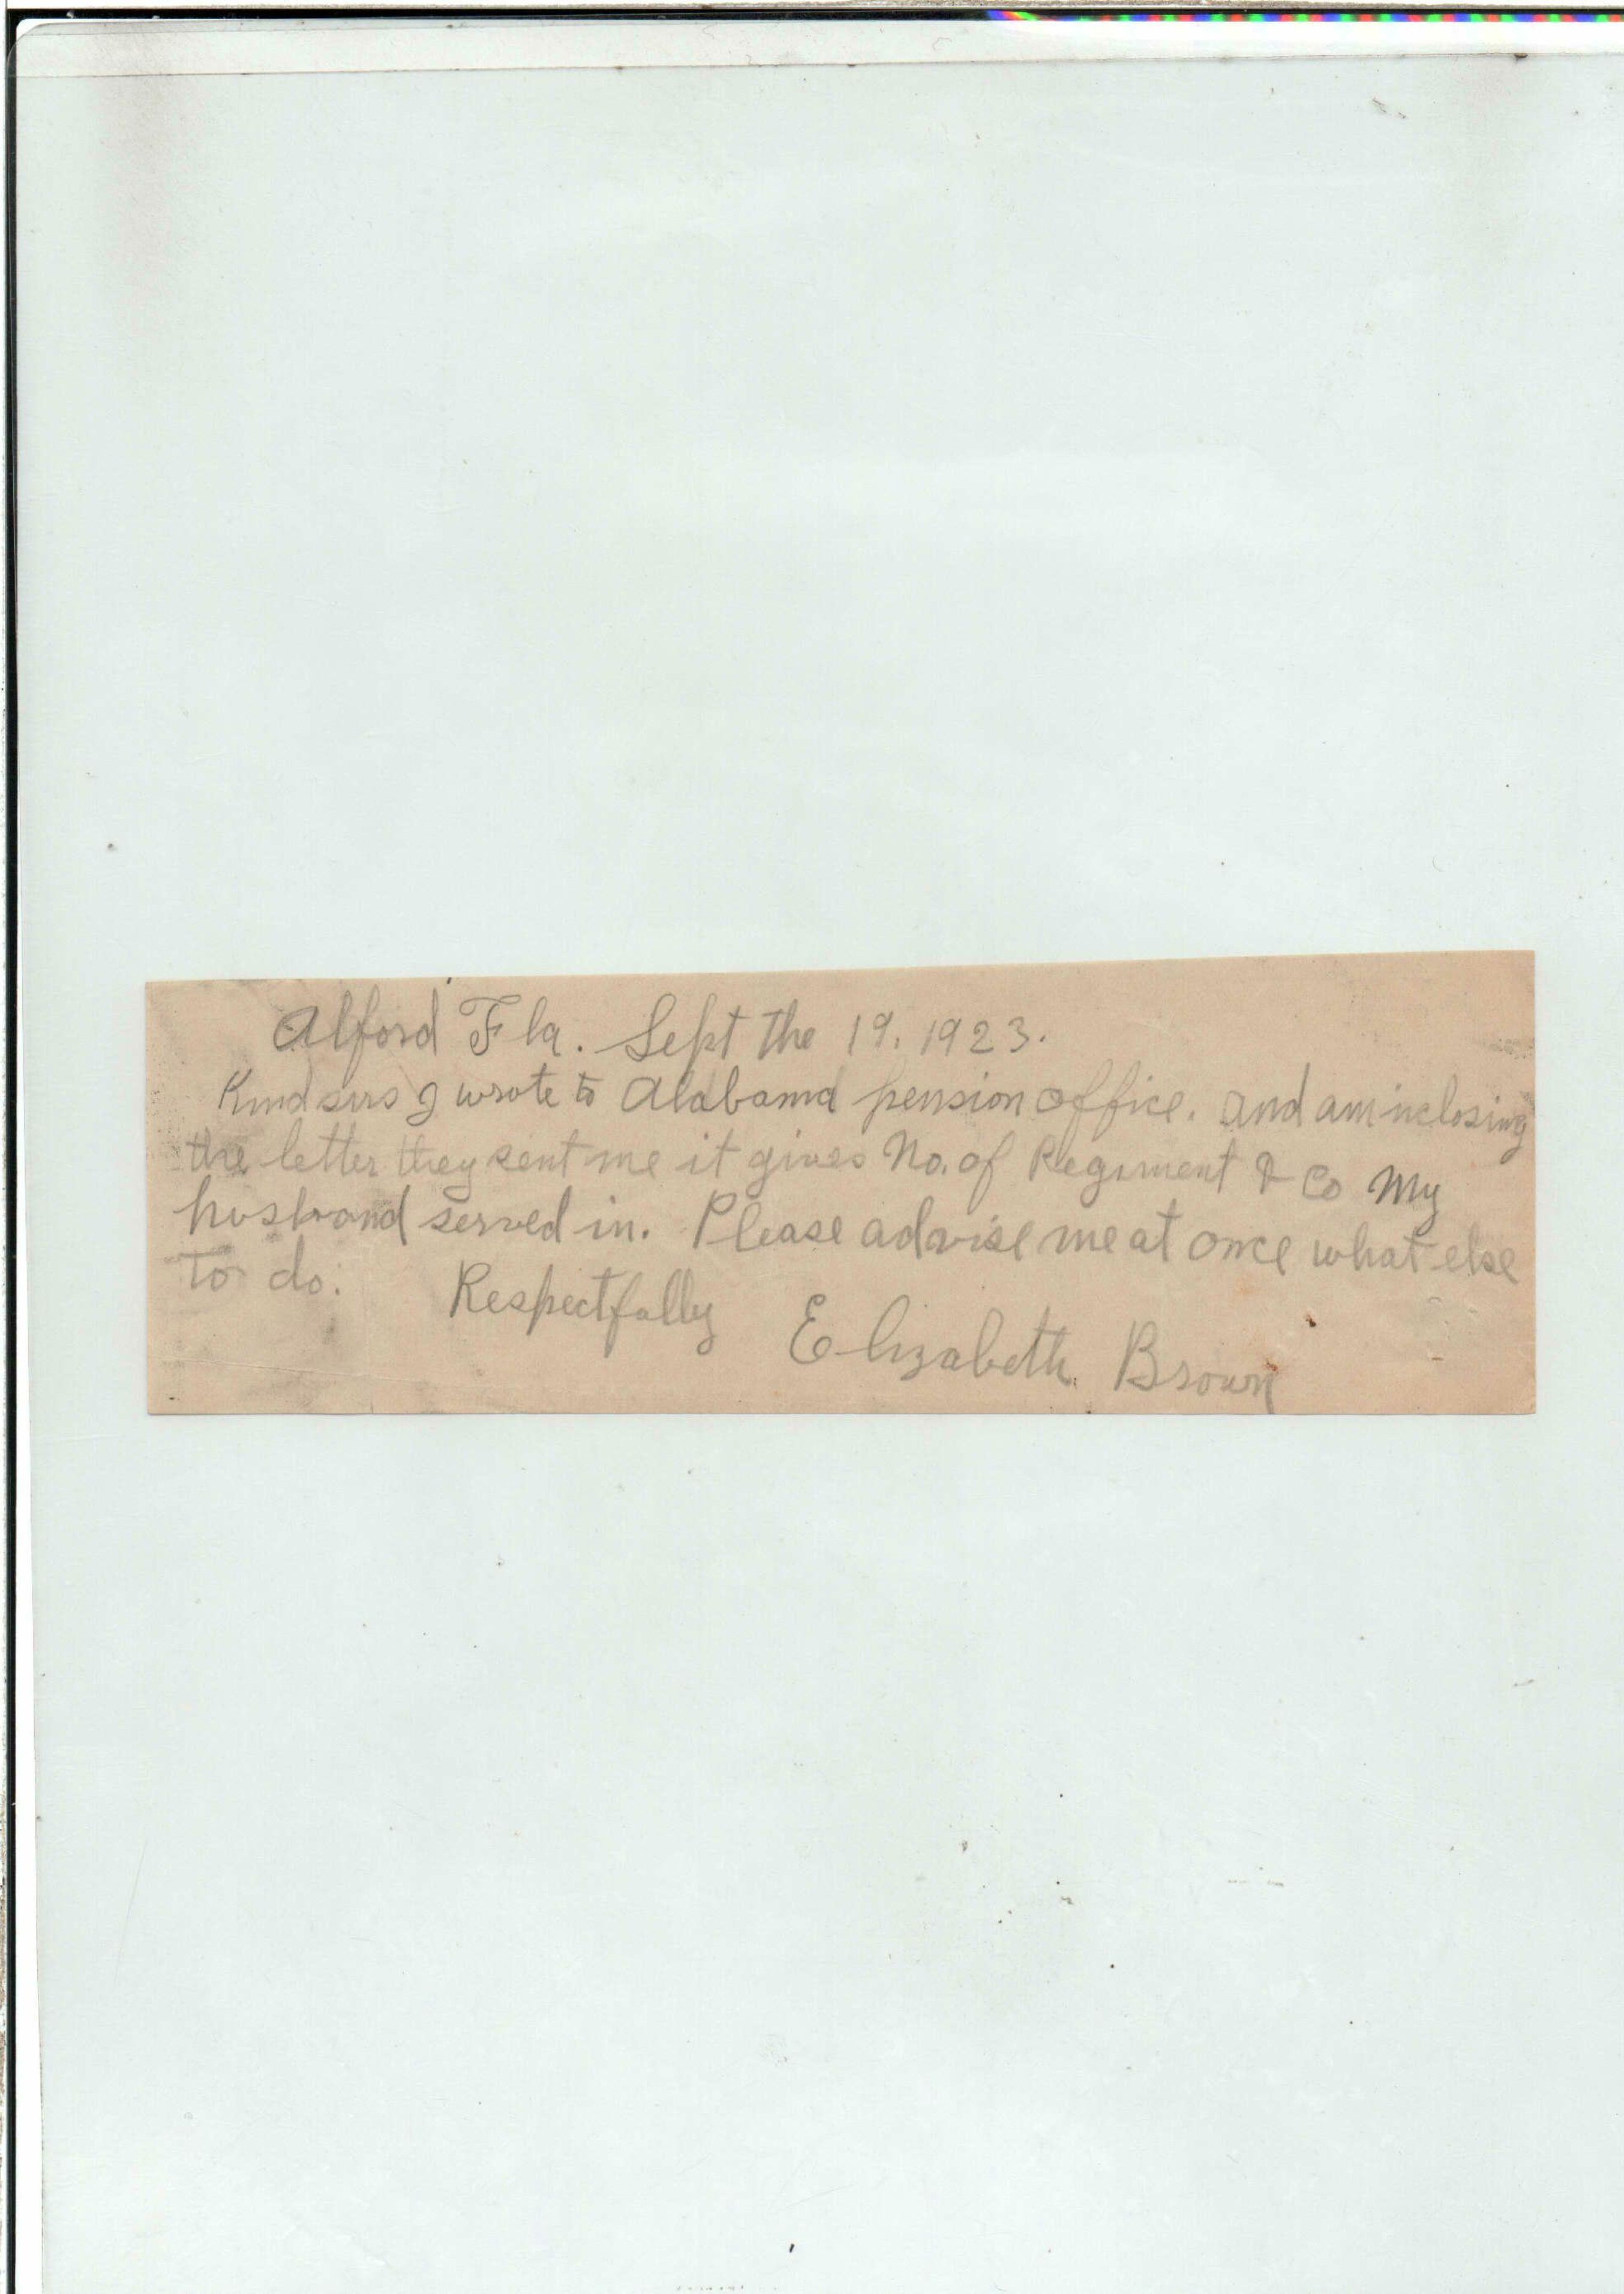 Alford Fla. Sept the 19. 1923.
Kind sirs I wrote to Alabama pension office. and am inclosing
the letter they sent me it gives No. of Regiment & Co My
husband served in. Please advise me at once what else
to do. Respectfully
Elizabeth Brown